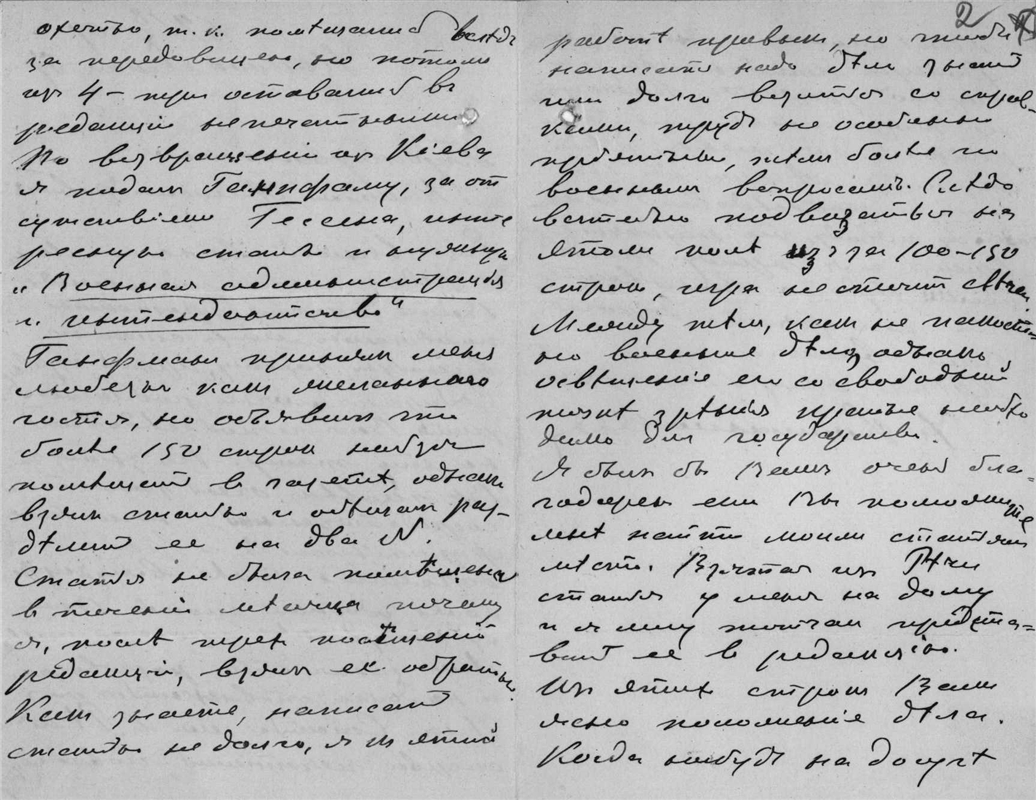 охотно, т. к. помѣщалъ всегда
за передовицею, но потомъ
изъ 4-хъ три оставались въ
редакціи непечатными
По возвращеніи изъ Кіева
я подалъ Ганфману, за от
сутствіемъ Гессена, инте
ресную статью и нужную
„Военная администрація
и интендантство"
Ганфманъ принялъ меня
любезно какъ желаннаго
гостя, но объявилъ что
болѣе 150 строкъ нельзя
помѣщать въ газетѣ, однако
взялъ статью и обѣщалъ раз-
дѣлить ее на два №.
Статья не была помѣщена
въ теченіи мѣсяца почему
я, послѣ трехъ посѣщеній
редакціи, взялъ ее обратно.
Какъ знаете, написать
статью не долго, я къ этой
2
работѣ привыкъ, но чтобы
написать надо дѣло знать
или долго возиться со справ-
ками, трудъ не особенно
пріятный, тѣмъ болѣе по
военнымъ вопросамъ. Слѣдо
вательно подвизаться на
этомъ полѣ изъ за 100-150
строкъ, игра не стоитъ свѣчъ
Между тѣмъ, какъ не
но военное дѣло, однако,
освѣщеніе его со свободной
точки зрѣнія крайне необхо
димо для государства.
Я былъ бы Вамъ очень бла-
годаренъ если Вы поможете
мнѣ найти моимъ статьямъ
мѣсто. Взятая изъ Рѣчи
статья у меня на дому
и я могу тотчасъ предста-
вить ее въ редакцію.
Изъ этихъ строкъ Вамъ
ясно положеніе дѣла.
Когда нибудь на досугѣ